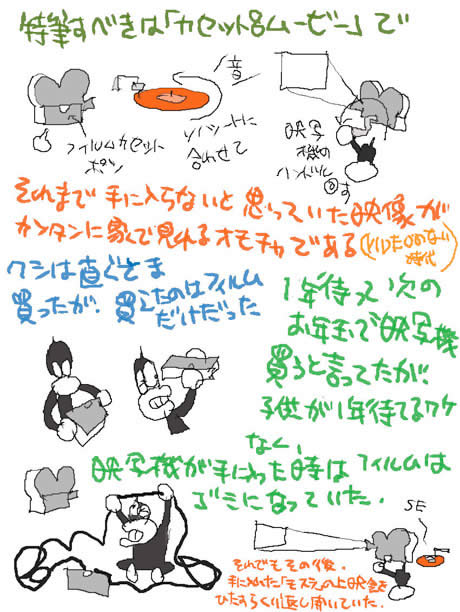 特筆すべきは「カセット8ムービー」で
音
フィルムカセット
ポン
ソノシートに
合わせて
映写
機の
ハンドル
回す
それまで手に入らないと思っていた映像が
カンタンに家で見れるオモチャである
(ビデオのない
時代)
ワシは直ぐさま
買ったが、買えたのはフィルム
だけだった
1年待って次の
お年玉で映写機
買うと言ってたが、
子供が1年待てるワケ
なく、
映写機が手に入った時はフィルムは
ゴミになっていた.
SE
それでもその後、
手に入れた「モスラ」の上映会を
ひたすらくり返し開いていた.